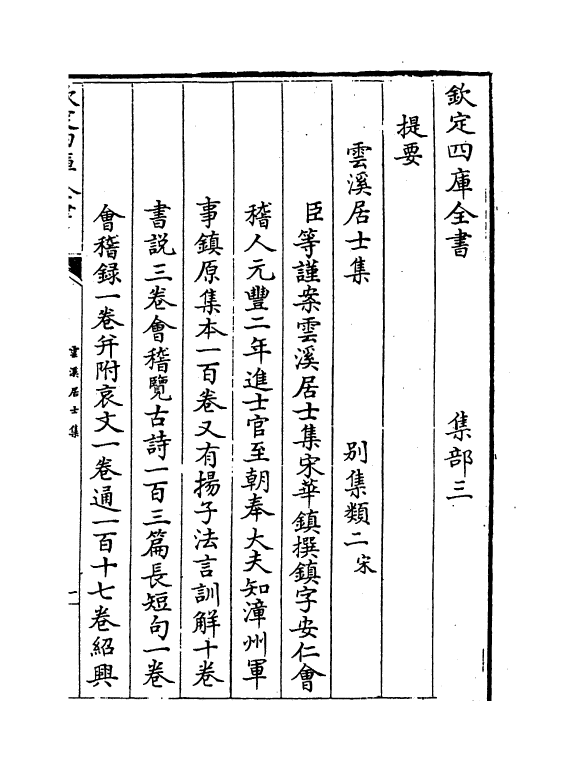 欽定四庫全書　　集部三
提要
雲溪居士集　　別集類二宋
臣等謹案雲溪居士集宋華鎮撰鎮字安仁會
稽人元豐二年進士官至朝奉大夫知漳州軍
事鎮原集本一百卷又有揚子法言訓解十卷
書説三卷會稽覽古詩一百三篇長短句一卷
會稽録一卷并附哀文一卷通一百十七卷紹興
雲溪居士集